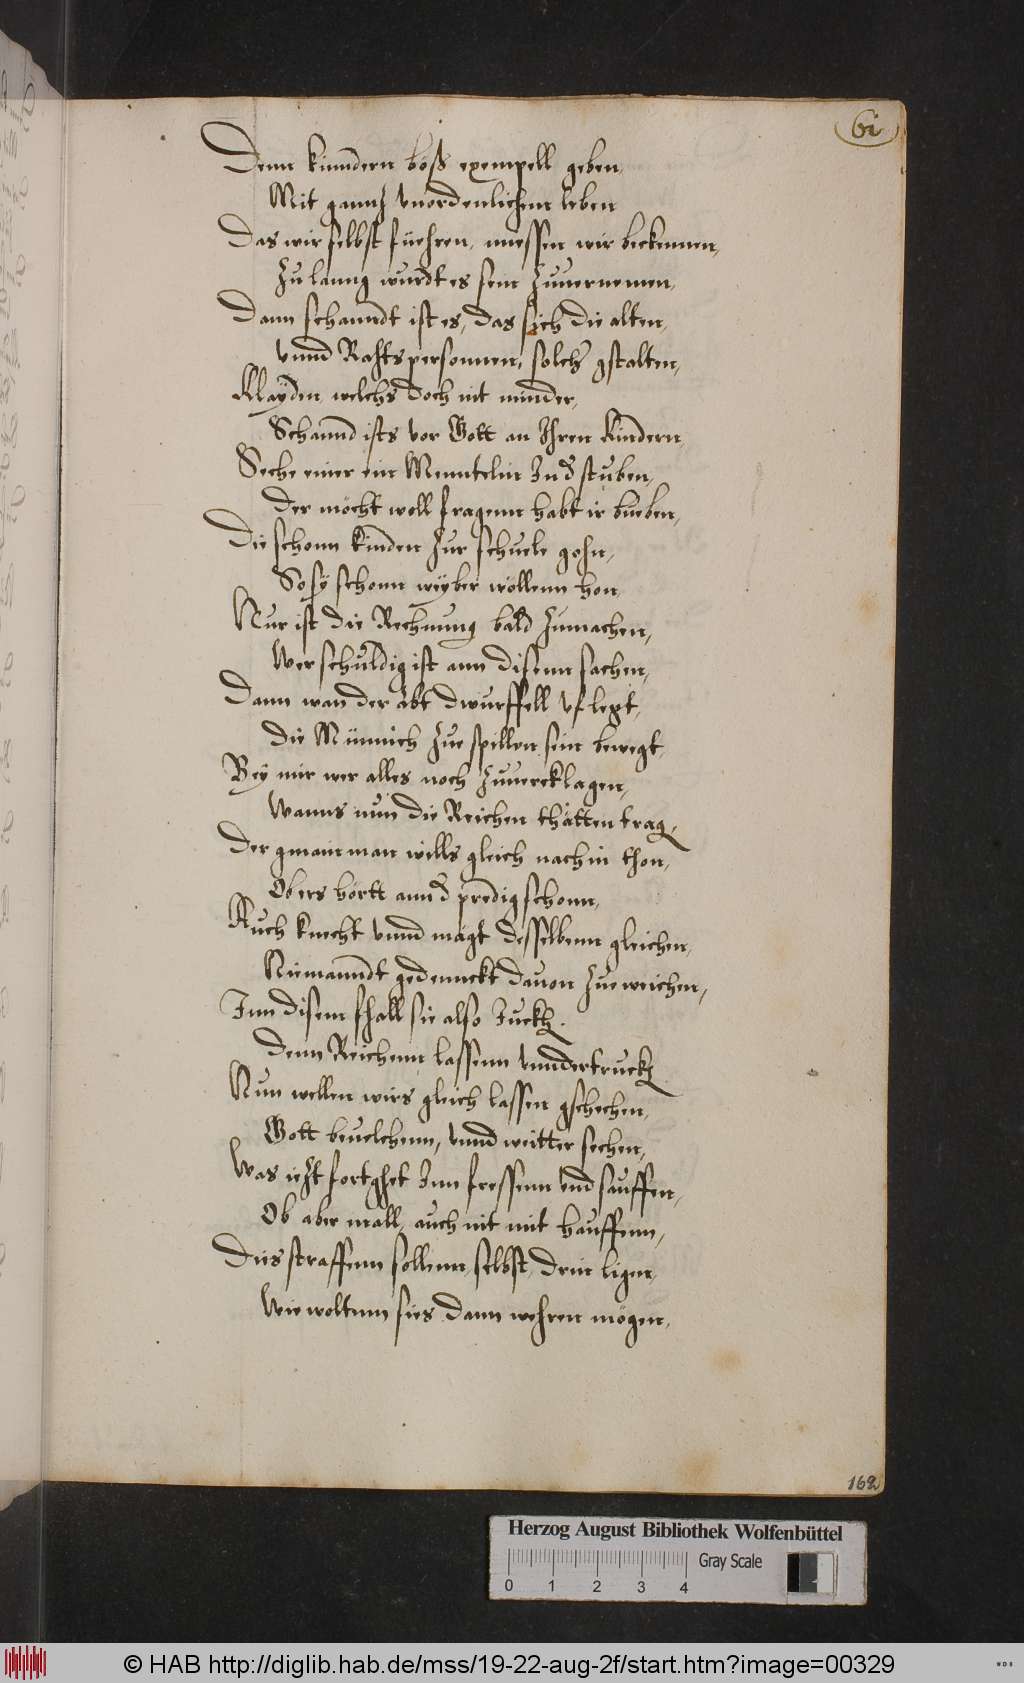 61
Denn kinndern böß exempell geben,
Mit gantz vnordenlichem leben
Das wir selbst füehren, muessen wir bekennen,
Zu lanng wurdt es sein Zuuernemen,
Dann schanndt ist es, das sich die alten,
vnnd Rahtspersonnen, solcher gstalten,
Klayden, welchs doch nit minder,
Schannd ists vor Gott an Ihren Kindern,
Seche einer ein Menntelin In d stuben,
Der möcht woll fragenn habt ir bueben,
Die schonn kinden Zur schuele gohn,
So sÿ schonn weyber wöllenn hon
Nur ist die Rechnung bald Zumachen,
Wer schuldig ist ann disenn sachen,
Dann wan der abt dwurffell vf legt,
die Münnich Zue spillen sein bewegt
Bey mir wer alles noch Zuuercklagen,
Wanns nun die Reichen thätten trag,
Der gmain man wills gleich nach in thon,
Ob ers hörtt ann d predig schonn,
Auch knecht vnnd mägt desselbenn gleichen,
Niemanndt gedennckt dauon Zue weichen,
Inn disem fhall sie also Zuckh.
denn Reichenn lassenn vnndertruckh
Nun wellen wirs gleich lassen gschechen,
Gott beuelchenn, vnnd weitter sechen,
Was ietzt fortghet Inn fressenn vnd sauffen,
Ob aber mall, auch nit mit hauffenn,
Dies straffenn sollenn, selbst drin ligen,
Wie woltenn sies dann wehren mögen,
162
Herzog August Bibliothek Wolfenbüttel
Gray Scale
0 1 2 3 4
© HAB http://diglib.hab.de/mss/19-22-aug-2f/start.htm?image=00329